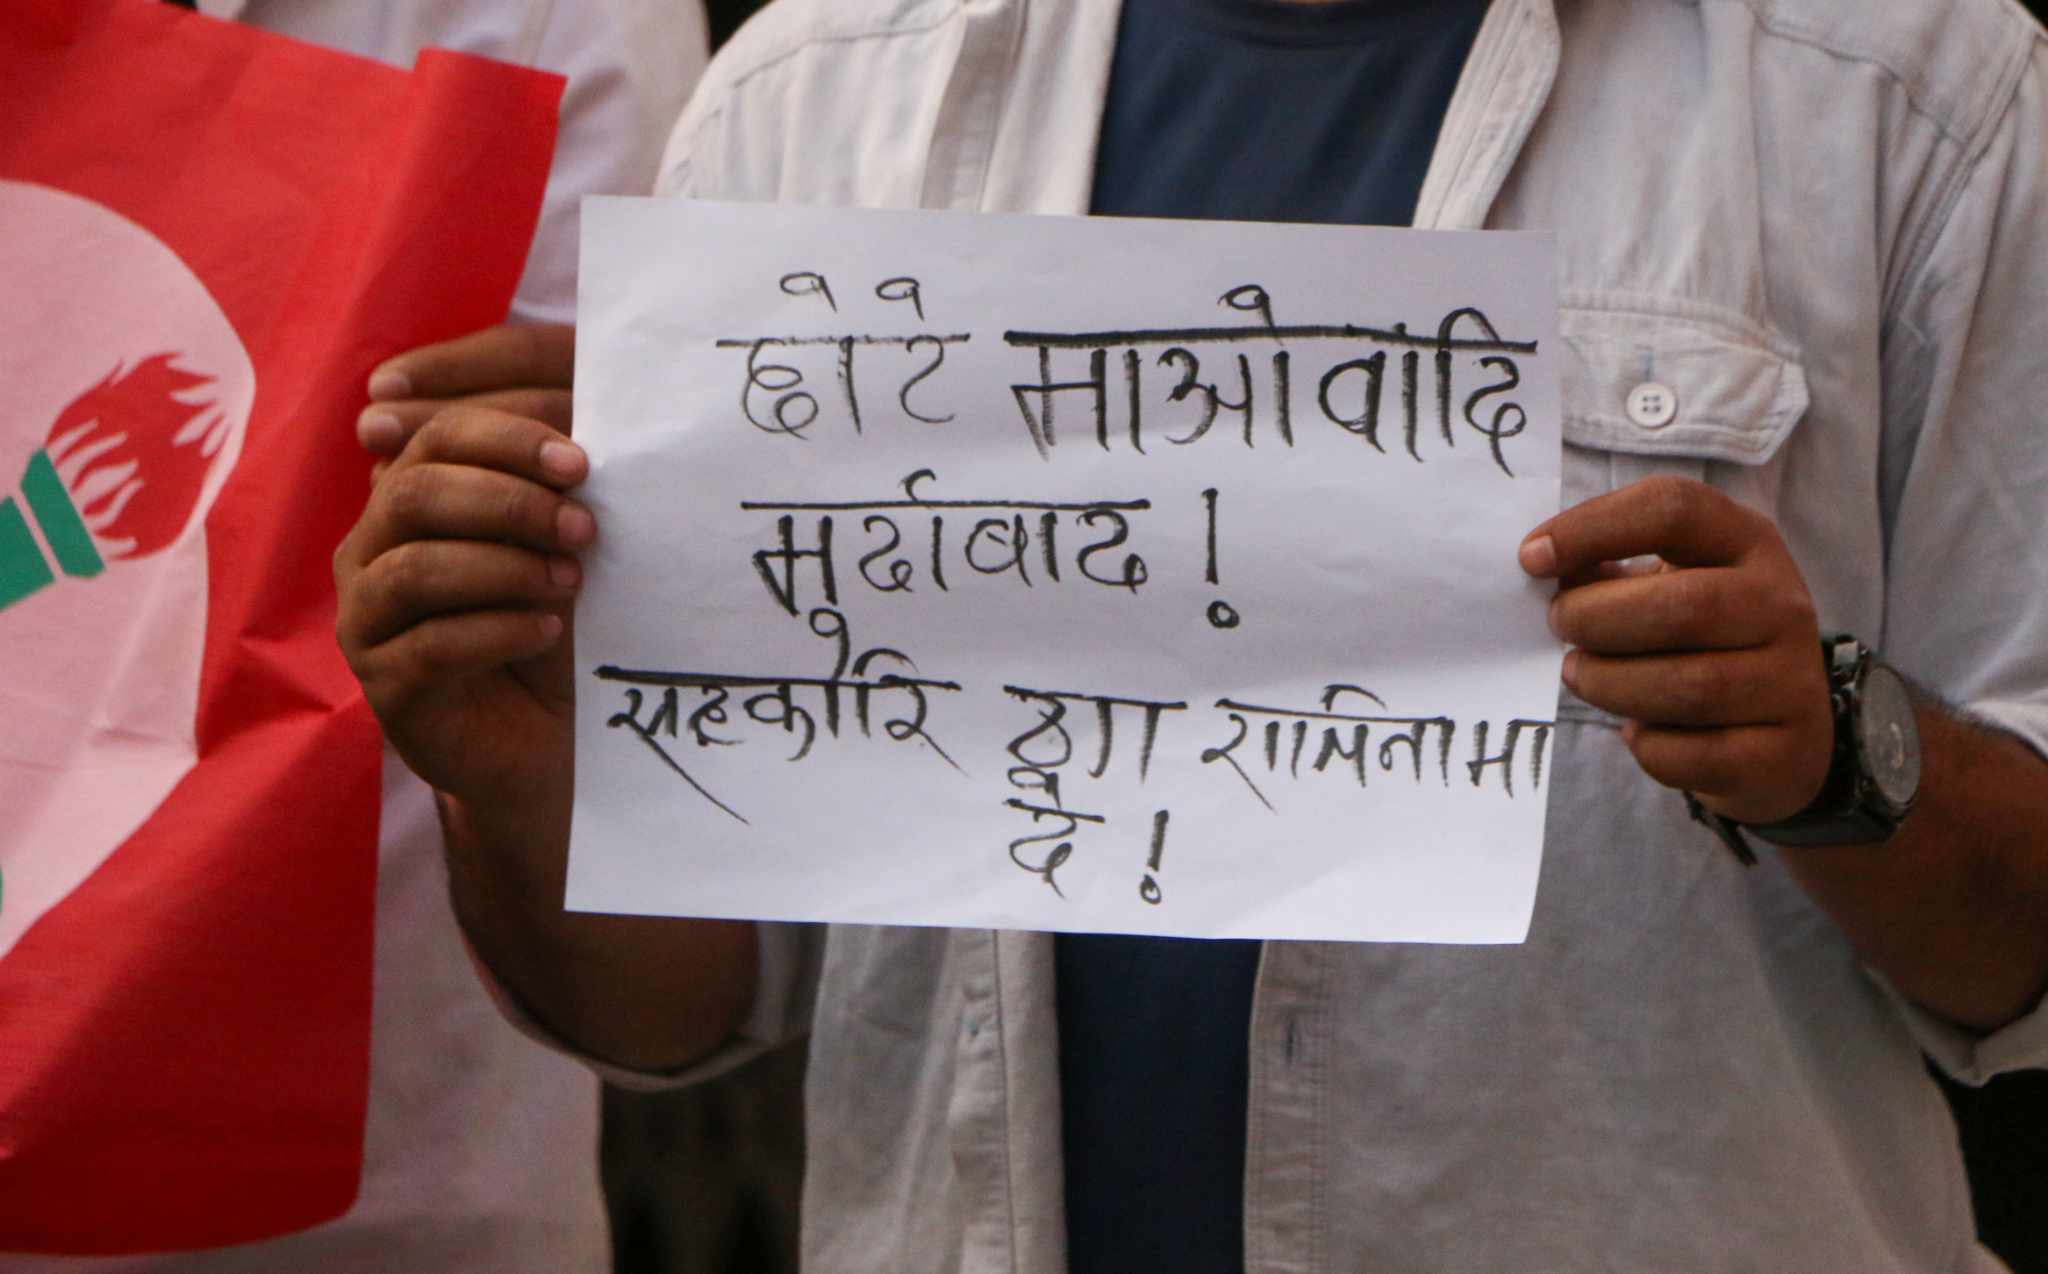 छोटे माओवादि
मुर्दावाद !
सहकोरि ठग राजिनामा
दे !